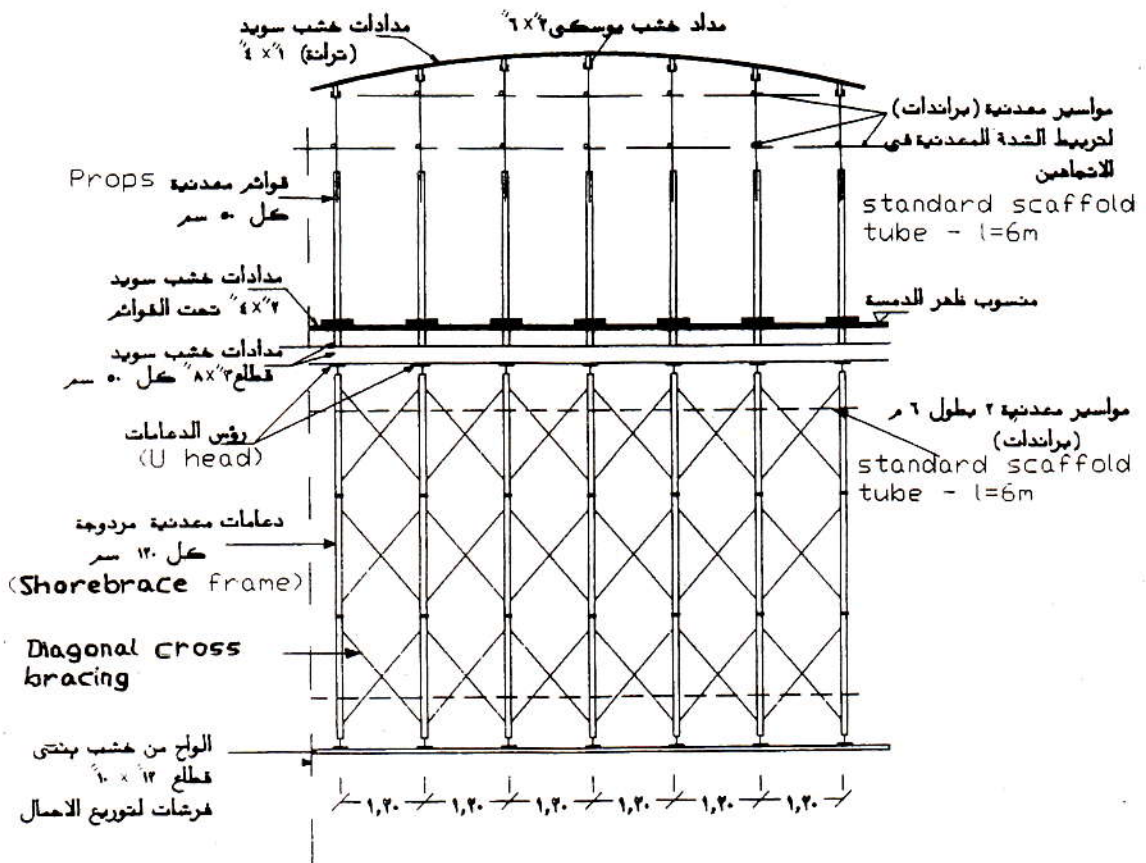 مدادات خشب سويد
(ترانة) ١" × ٤"
مداد خشب موسكى ٢"×٦"
مواسير معدنية (براندات)
لتربيط الشدة المعدنية فى
الاتجاهين
standard scaffold
tube - l=6m
Props قوائم معدنية
كل ٥٠ سم
مدادات خشب سويد
٢"×٤" تحت القوائم
منسوب ظهر الدمسة
مدادات خشب سويد
قطاع ٣"×٨" كل ٥٠ سم
رؤس الدعامات
(U head)
مواسير معدنية ٢ بطول ٦ م
(براندات)
standard scaffold
tube - l=6m
دعامات معدنية مزدوجة
كل ١٢٠ سم
(Shorebrace frame)
Diagonal cross
bracing
الواح من خشب بنتى
قطاع ١٢" × ١٠"
فرشات لتوزيع الاحمال
١,٢٠ ١,٢٠ ١,٢٠ ١,٢٠ ١,٢٠ ١,٢٠